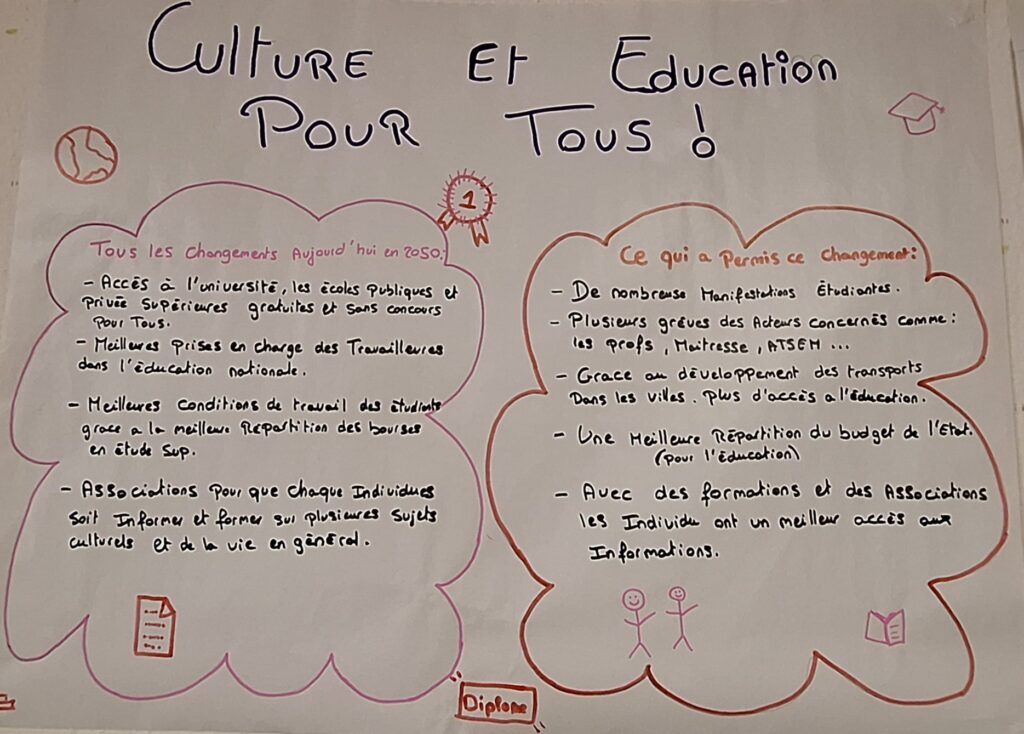 Culture Et Education
Pour Tous !
1
Tous les changements Aujourd'hui en 2050:
- Accès à l'université, les écoles publiques et
privée supérieures gratuites et sans concours
Pour Tous.
- Meilleures prises en charge des Travailleures
dans l'éducation nationale.
- Meilleures conditions de travail des étudiants
grace a la meilleure Répartition des bourses
en étude Sup.
- Associations pour que chaque Individues
soit Informer et former sur plusieures sujets
culturels et de la vie en général.
Ce qui a permis ce changement:
- De nombreuse Manifestations Étudiantes.
- Plusieurs grèves des Acteurs concernés comme:
les profs, Maitresse, ATSEM ...
- Grace au développement des transports
Dans les villes. Plus d'accès a l'éducation.
- Une Meilleure Répartition du budget de l'Etat.
(pour l'éducation)
- Avec des formations et des Associations
les Individu ont un meilleur accès aux
Informations.
Diplome